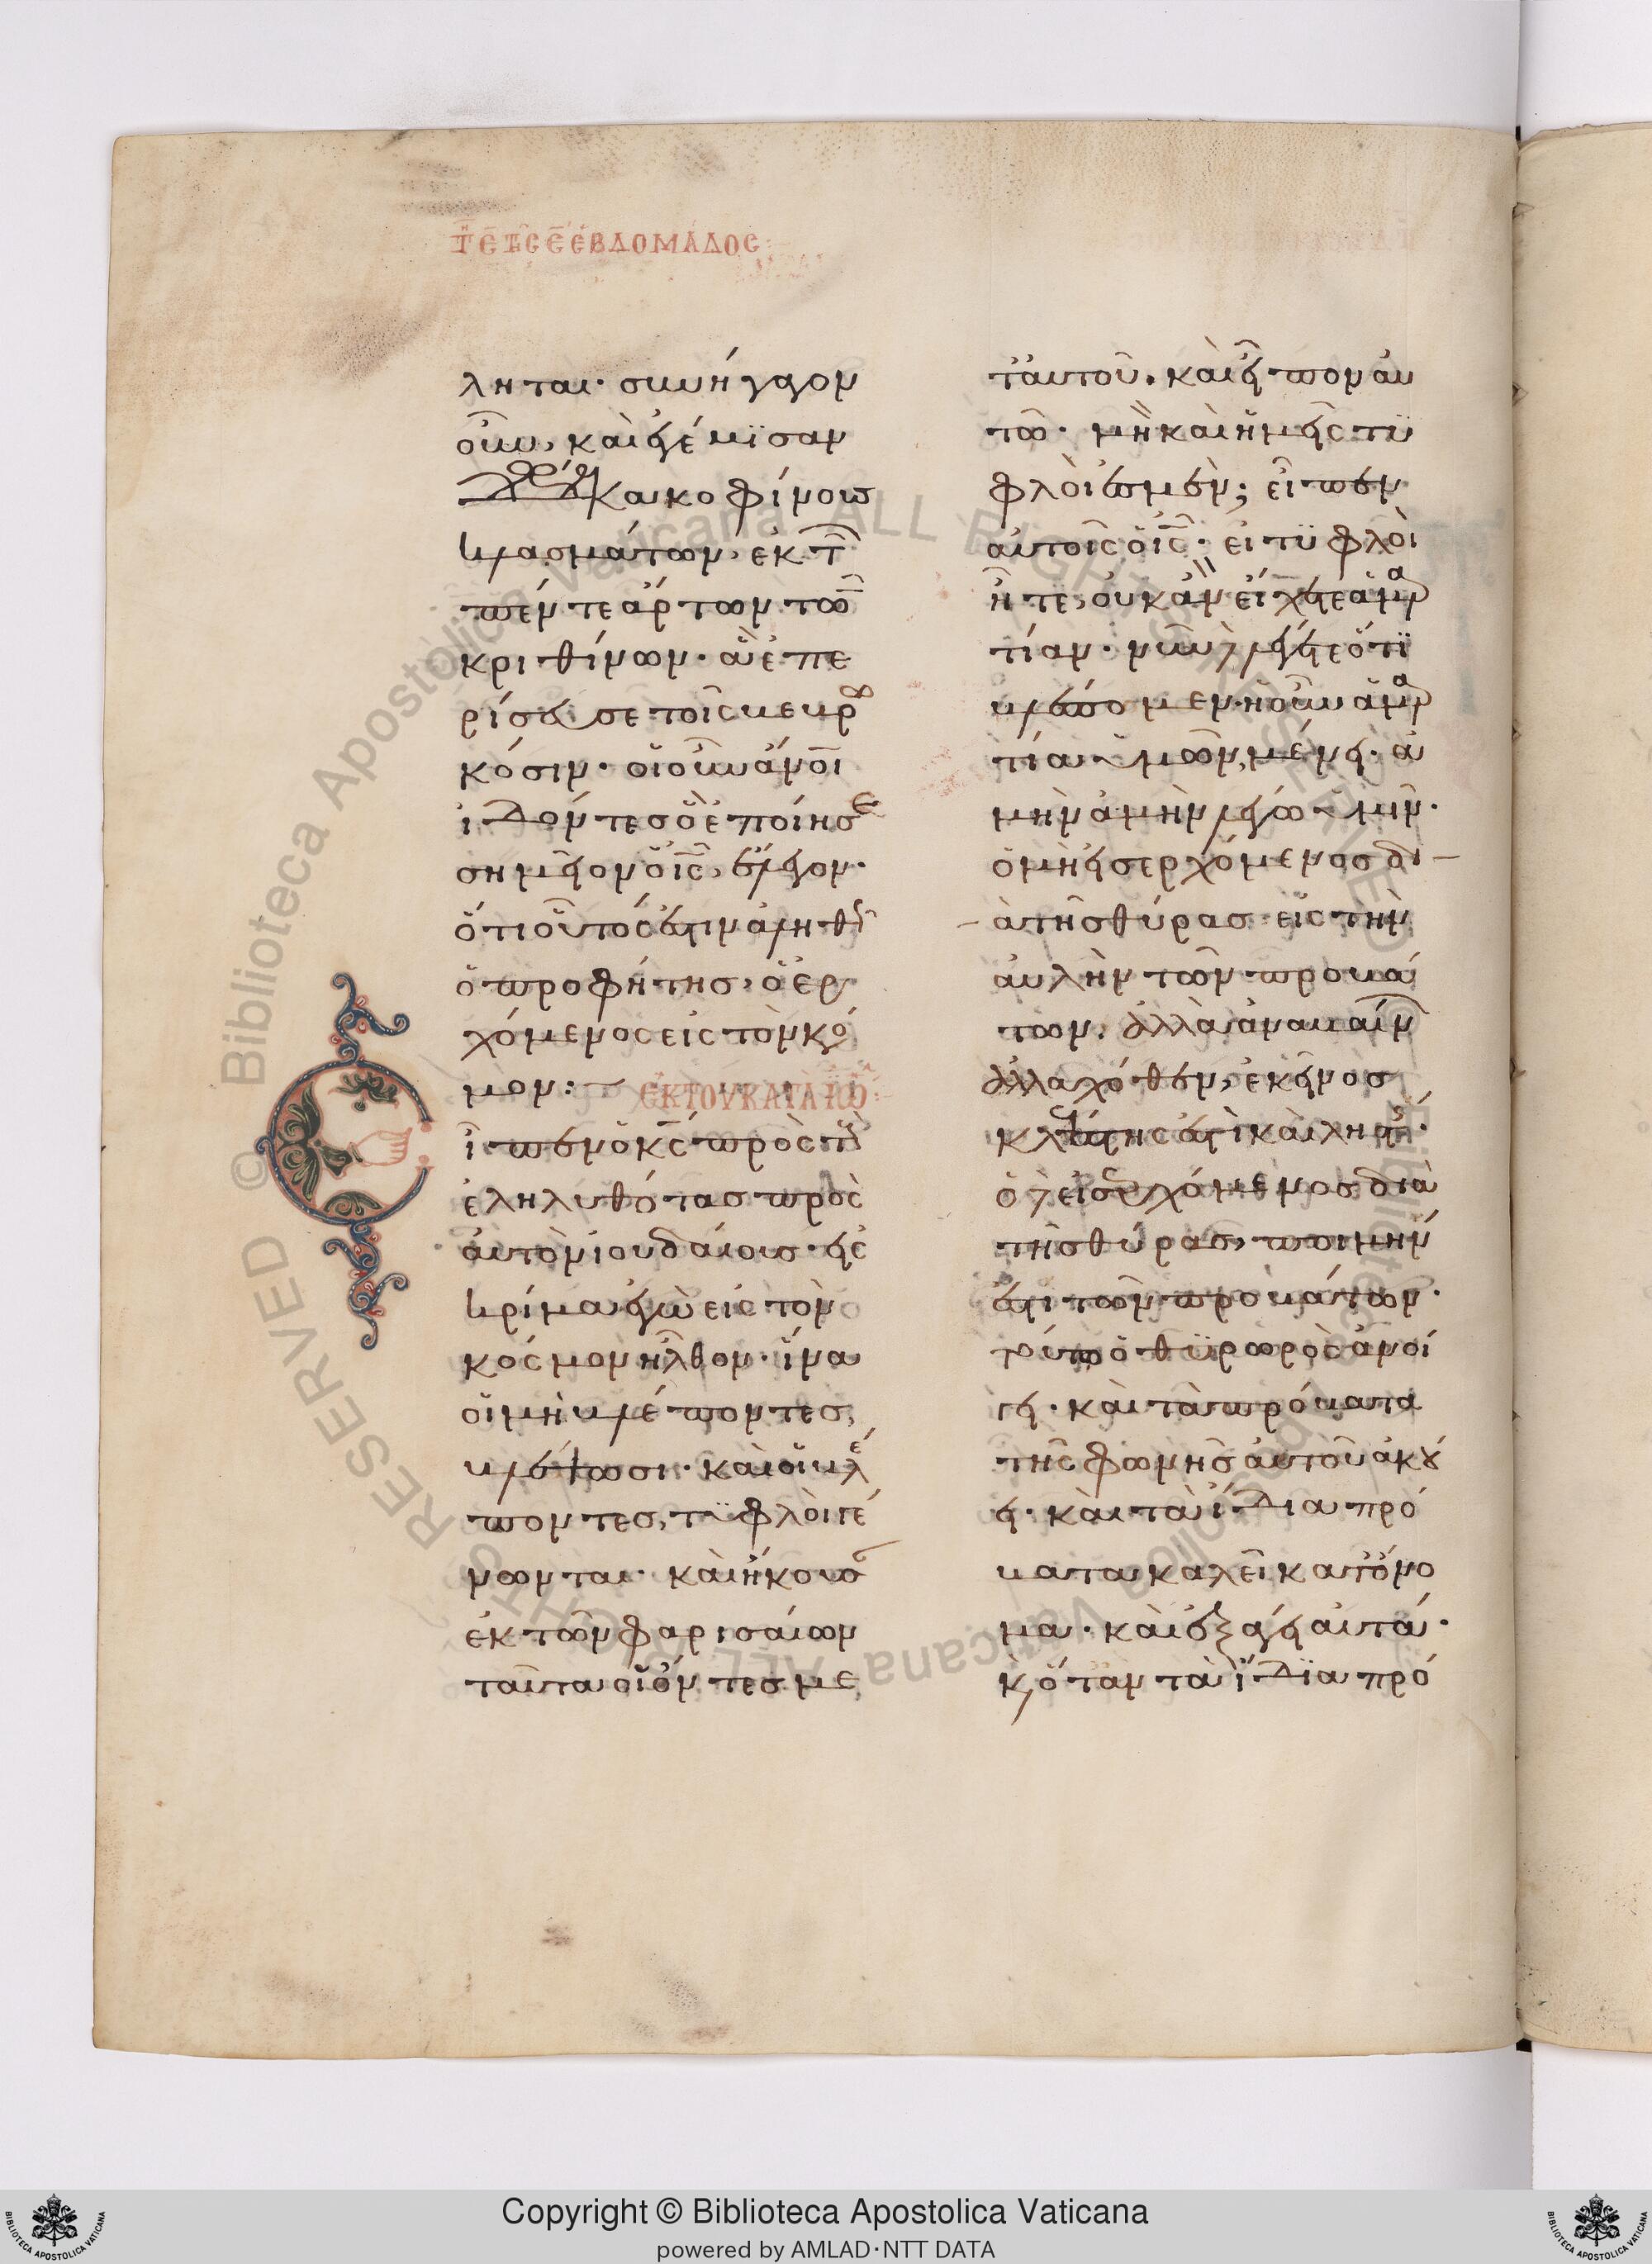 τῇ ε̅ τῆς ε̅ ἑβδομάδος
ληται· συνήγαγον
οὖν, καὶ ἐγέμϊσαν
δώδεκα κοφίνους
κλασμάτων, ἐκ τῶν
πέντε ἄρτων τῶν
κριθίνων· ἃ ἐπε
ρίσσευσε τοῖς βεβρω
κόσιν· οἱ οὖν ἄνοι
ἰδόντες ὃ ἐποίησε
σημεῖον ὁ ις, ἔλεγον·
ὅτι οὗτός ἐστιν ἀληθῶς
ὁ προφήτης, ὁ ἐρ
χόμενος εἰς τὸν κό
μον:
ἐκ τοῦ κατὰ ἰω
Εἶπεν ὁ κς πρὸς τοὺς
ἐληλυθότας πρὸς
αὐτὸν ἰουδαίους· εἰς
κρίμα ἐγὼ εἰς τὸν
κόσμον ἦλθον· ἵνα
οἱ μὴ βλέποντες,
βλέπωσι· καὶ οἱ βλέ
ποντες, τϋφλοὶ γέ
νωνται· καὶ ἤκουσαν
ἐκ τῶν φαρισαίων
ταῦτα οἱ ὄντες με
τ' αὐτοῦ· καὶ εἶπον αὐ
τῶ· μὴ καὶ ἡμεῖς τϋ
φλοί ἐσμεν; εἶπεν
αὐτοῖς ὁ ις· εἰ τϋφλοὶ
ἦτε, οὐκ ἂν εἴχετε ἁμαρ
τίαν· νῦν δὲ λέγετε ὅτϊ
βλέπομεν· ἡ οὖν ἁμαρ
τία ὑμῶν, μένει· ἀ
μὴν ἀμὴν λέγω ὑμῖν·
ὁ μὴ εἰσερχόμενος δι
ὰ τῆς θύρας εἰς τὴν
αὐλὴν τῶν προβά
των, ἀλλὰ ἀναβαίνων
ἀλλαχόθεν, ἐκεῖνος
κλέπτης ἐστὶ καὶ ληστής·
ὁ δὲ εἰσερχόμενος διὰ
τῆς θύρας, ποιμήν
ἐστι τῶν προβάτων·
τούτω ὁ θϋρωρὸς ἀνοί
γει· καὶ τὰ πρόβατα
τῆς φωνῆς αὐτοῦ ἀκού
ει· καὶ τὰ ἴδια πρό
βατα καλεῖ κατ' ὄνο
μα· καὶ ἐξάγει αὐτά·
καὶ ὅταν τὰ ἴδϊα πρό
Copyright © Biblioteca Apostolica Vaticana
powered by AMLAD·NTT DATA